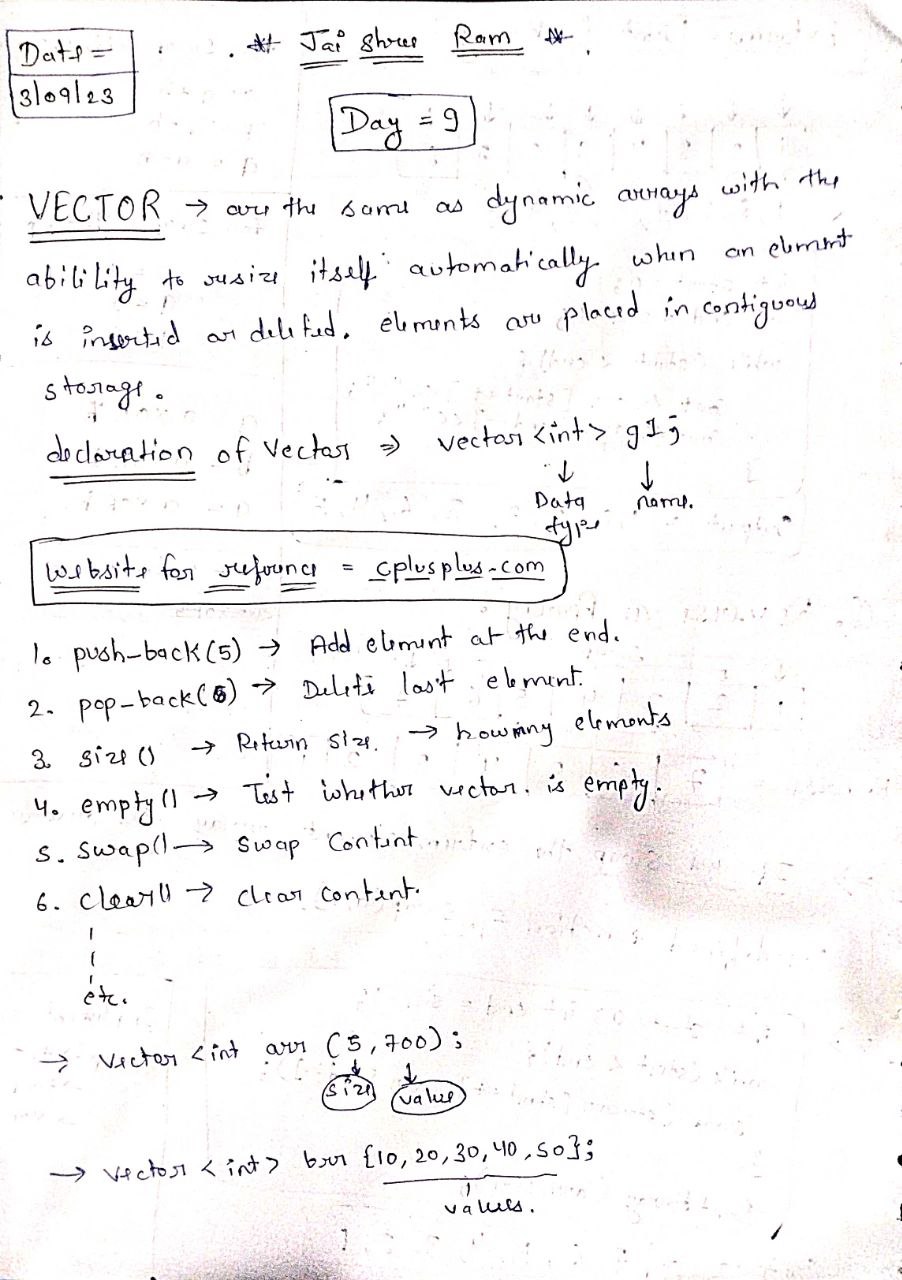 Date =
3/09/23
** Jai Shree Ram **
Day = 9
VECTOR → are the same as dynamic arrays with the
ability to resize itself automatically when an element
is inserted or deleted. elements are placed in contiguous
storage.
declaration of Vector ⇒ vector <int> g1;
↓ ↓
Data type name.
Website for refrence = cplusplus.com
1. push-back(5) → Add element at the end.
2. pop-back(5) → Delete last element.
3. size () → Return size. → how many elements
4. empty() → Test whether vector. is empty.
5. swap() → Swap Content
6. clear() → clear content.
etc.
→ vector <int arr (5,700);
↓ ↓
size value
→ vector <int> brr {10, 20, 30, 40, 50};
values.